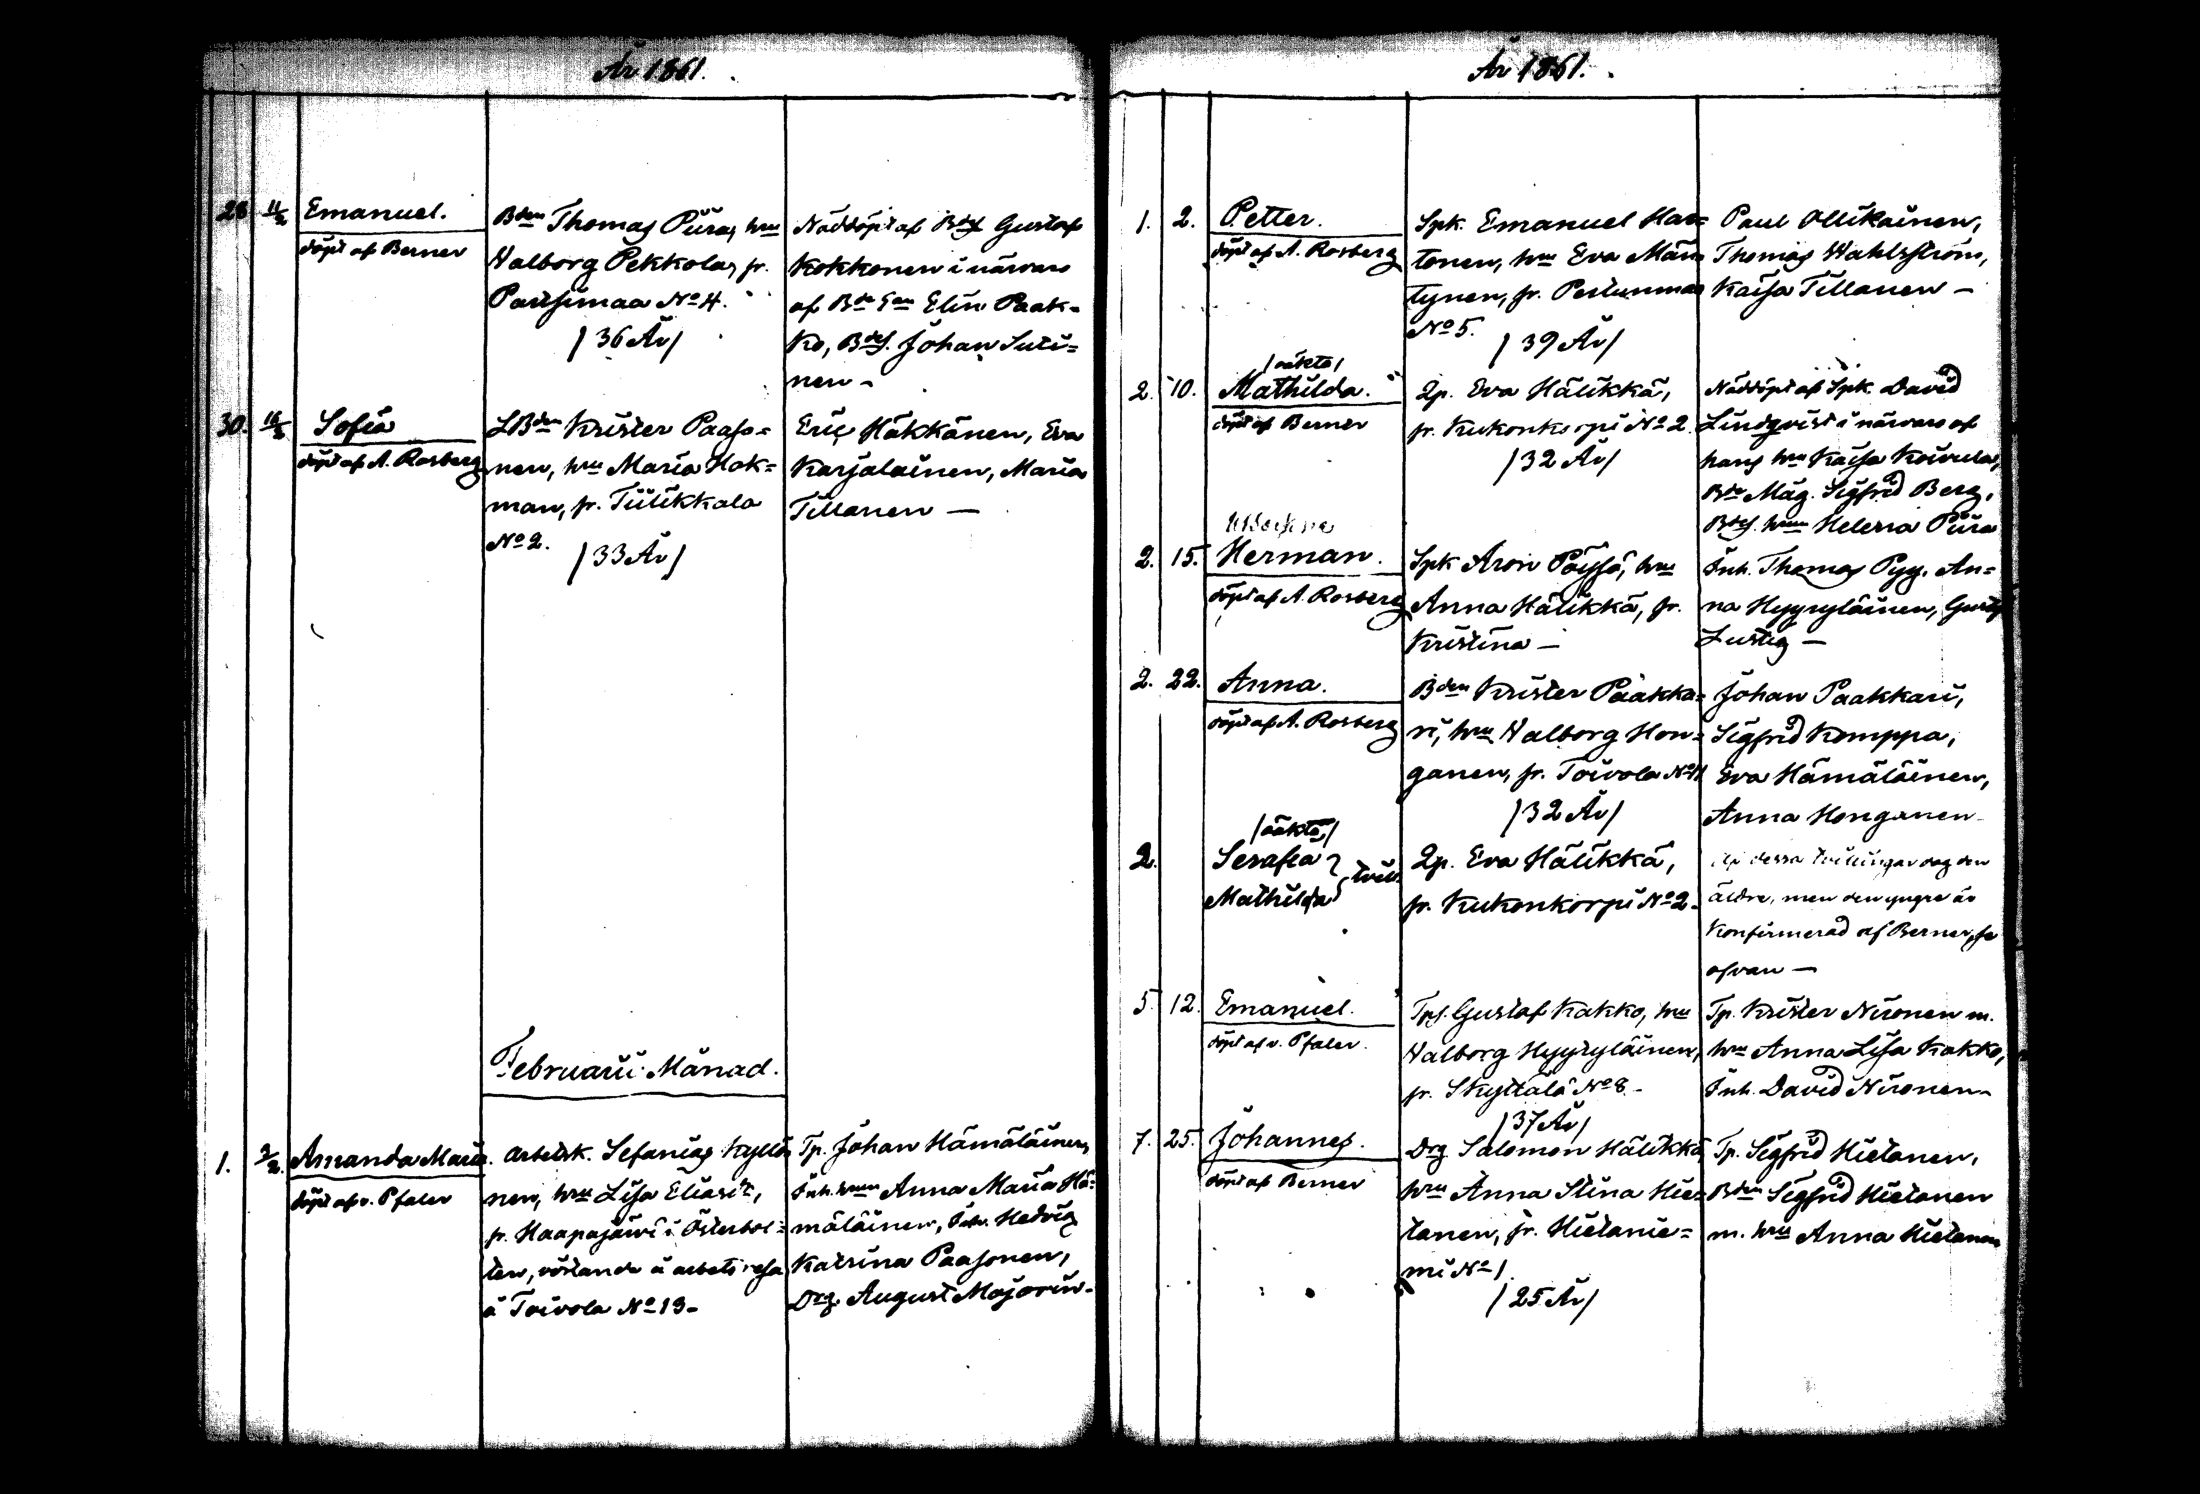 År 1861.
28 11/2 Emanuel.
döpt af Berner
Bden Thomas Piira, hru
Walborg Pekkola, fr.
Paitsimaa No 4.
/36 År/
Nöddöpt af Bdes Gustaf
Kokkonen i närvaro
af Bde Elin Paak-
ko, Bdes. Johan Suti=
nen –
30. 16/3 Sofia
döpt af A. Rosberg
LBden Krister Paaso=
nen, hru Maria Hok=
man, fr. Tiilikkala
No 2.
/33 År/
Eric Häkkänen, Eva
Karjalainen, Maria
Tillanen —
Februarii Månad.
1. 3/2. Amanda Maria.
döpt af v. Pfaler
Arbetsk. Sefanias Kyllö
nen, hru Lisa Eliasdr,
fr. Haapajärvi i Österbot=
ten, vistande å arbets resa
å Toivola No 13 –
Tp. Johan Hämäläinen,
Inh. hrun Anna Maria Hä=
mäläinen, Inh. Hedvig
Katrina Paasonen,
Drg. August Majorin –
År 1861.
1. 2. Petter.
döpt af A. Rosberg
Spk. Emanuel Har=
tonen, hru Eva Män
tynen, fr. Pertunmaa
No 5.
/39 År/
Paul Ollikainen,
Thomas Wahlström,
Kaisa Tillanen –
/oäkta/
2. 10. Mathilda.
döpt af Berner
Qp. Eva Hälikkä,
fr. Kukonkorpi No 2.
/32 År/
Nöddöpt af Spk. David
Lindqvist i närvaro af
hans hru Kaisa Koivula,
Bde Måg. Sigfrid Berg,
Bdes. hrun Helena Piira
2. 15. Herman.
döpt af A. Rosberg
Spk Aron Pöyhö, hru
Anna Hälikkä, fr.
Kristina –
Inh. Thomas Pyy, An=
na Hyyryläinen, Gustaf
Lustig –
2. 22. Anna.
döpt af A. Rosberg
Bden Krister Paakka=
ri, hru Walborg Hon=
ganen, fr. Toivola No 11
/32 År/
Johan Paakkari,
Sigfrid Komppa,
Eva Hämäläinen,
Anna Honganen
/oäkta/
2. Serafia
Mathilda } tvill.
Qp. Eva Hälikkä,
fr. Kukonkorpi No 2 –
Af dessa tvillingar dog den
äldre, men den yngre är
Konfirmerad af Berner, se
ofvan —
5. 12. Emanuel.
döpt af v. Pfaler.
Tps. Gustaf Kakko, hru
Walborg Hyyryläinen,
fr. Skyttälä No 8 –
/37 År/
Tp. Krister Nironen m.
hru Anna Lisa Kakko,
Inh. David Nironen –
7. 25. Johannes.
döpt af Berner
Drg Salomon Hälikkä,
hru Anna Stina Hie=
tanen, fr. Hietanie=
mi No 1
/25 År/
Tp. Sigfrid Hietanen,
Bden Sigfrid Hietanen
m. hru Anna Hietanen